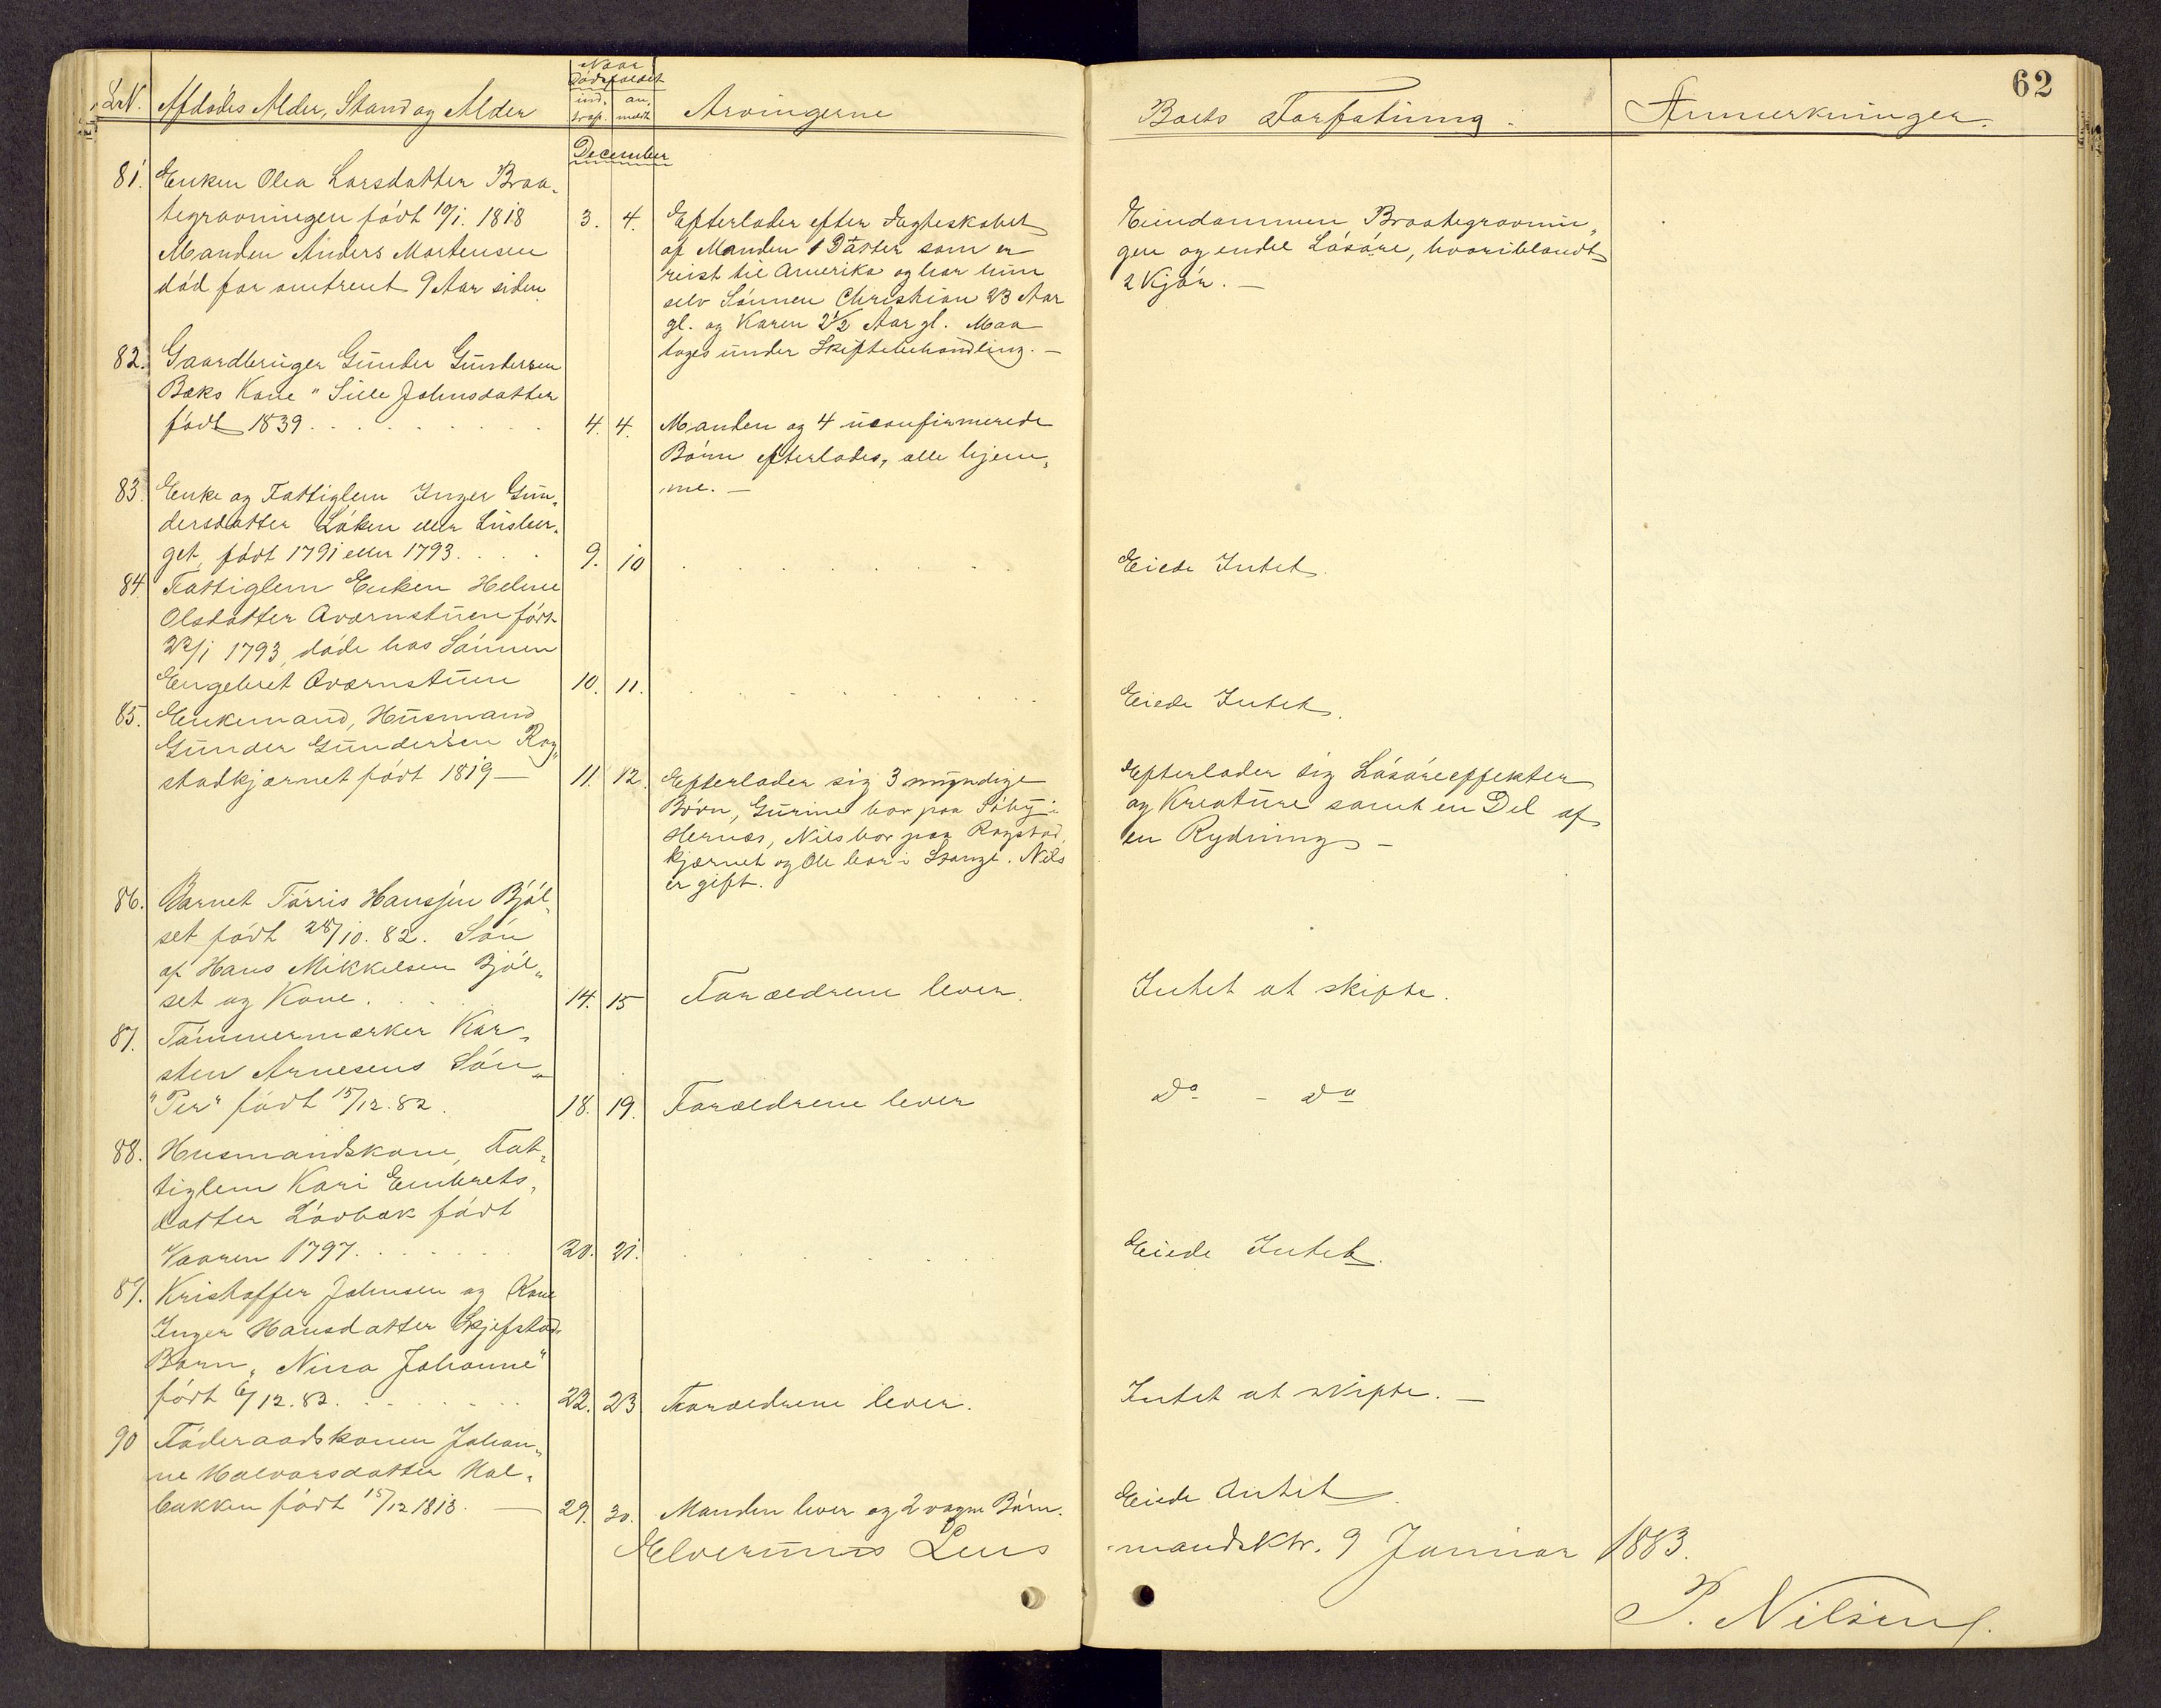 62
LN. Afdödes Alder, Stand og Alder
Naar Dödsfaldet
ind-
traf.
an-
meldt
Arvingerne
Boets Forfatning.
Anmerkninger.
December
81. Enken Olea Larsdatter Braa-
tegravningen födt 10/1. 1818
Manden Anders Mortensen
död for omtrent 9 Aar siden
3. 4.
Efterlader efter Ægteskabet
af Manden 1 Datter som er
reist til Amerika og har hun
selv Sönnen Christian 23 Aar
gl. og Karen 2 1/2 Aar gl. Maa
tages under Skiftebehandling. —
Eiendommen Braategravnin-
gen og endel Lösöre, hvoriblandt
2 Kjör. —
82. Gaardbruger Gunder Gundersen
Baks Kone " Sille Johnsdatter
födt 1839
4. 4.
Manden og 4 uconfirmerede
Börn efterlades, alle hjem-
me. —
83. Enke og Fattiglem Inger Gun-
dersdatter Löken eller
get, födt 1791 eller 1793.
9. 10
Eiede Intet.
84. Fattiglem Enken Helene
Olsdatter Qværnstuen födt
22/1 1793, döde hos Sönnen
Engebret Qværnstuen
10. 11.
Eiede Intet.
85. Enkemand, Husmand
Gunder Gundersen Rog-
stadkjærnet födt 1819 —
11. 12.
Efterlader sig 3 myndige
Börn, Gurine bor paa Söby i
Hernæs, Nils bor paa Rogstad-
kjærnet og Ole bor i Stange. Nils
er gift.
Efterlader sig Lösöreeffekter
og Kreature samt en Del af
en Rydning —
86. Barnet Törris Hanssen Bjöl-
set födt 28/10. 82. Sön
af Hans Mikkelsen Bjöl-
set og Kone.
14. 15
Forældrene lever.
Intet at skifte.
87. Tömmermærker Kar-
sten Arnesens Sön
"Per" födt 15/12. 82.
18. 19.
Forældrene lever
Do - do
88. Husmandskone, Fat-
tiglem Kari Embrets-
datter Lövbak födt
Vaaren 1797.
20. 21.
Eiede Intet.
89. Kristoffer Johnsen og Kone
Inger Hansdatter Skjefstad
Barn, "Nina Johanne"
födt 6/12. 82.
22. 23
Forældrene lever.
Intet at skifte. —
90 Föderaadskonen Johan-
ne Halvorsdatter Hol-
bakken födt 15/12 1813. —
29. 30.
Manden lever og 2 vogne Börn.
Eiede Intet
Elverums Lens-
mandsktr. 9 Januar 1883.
P. Nilsen